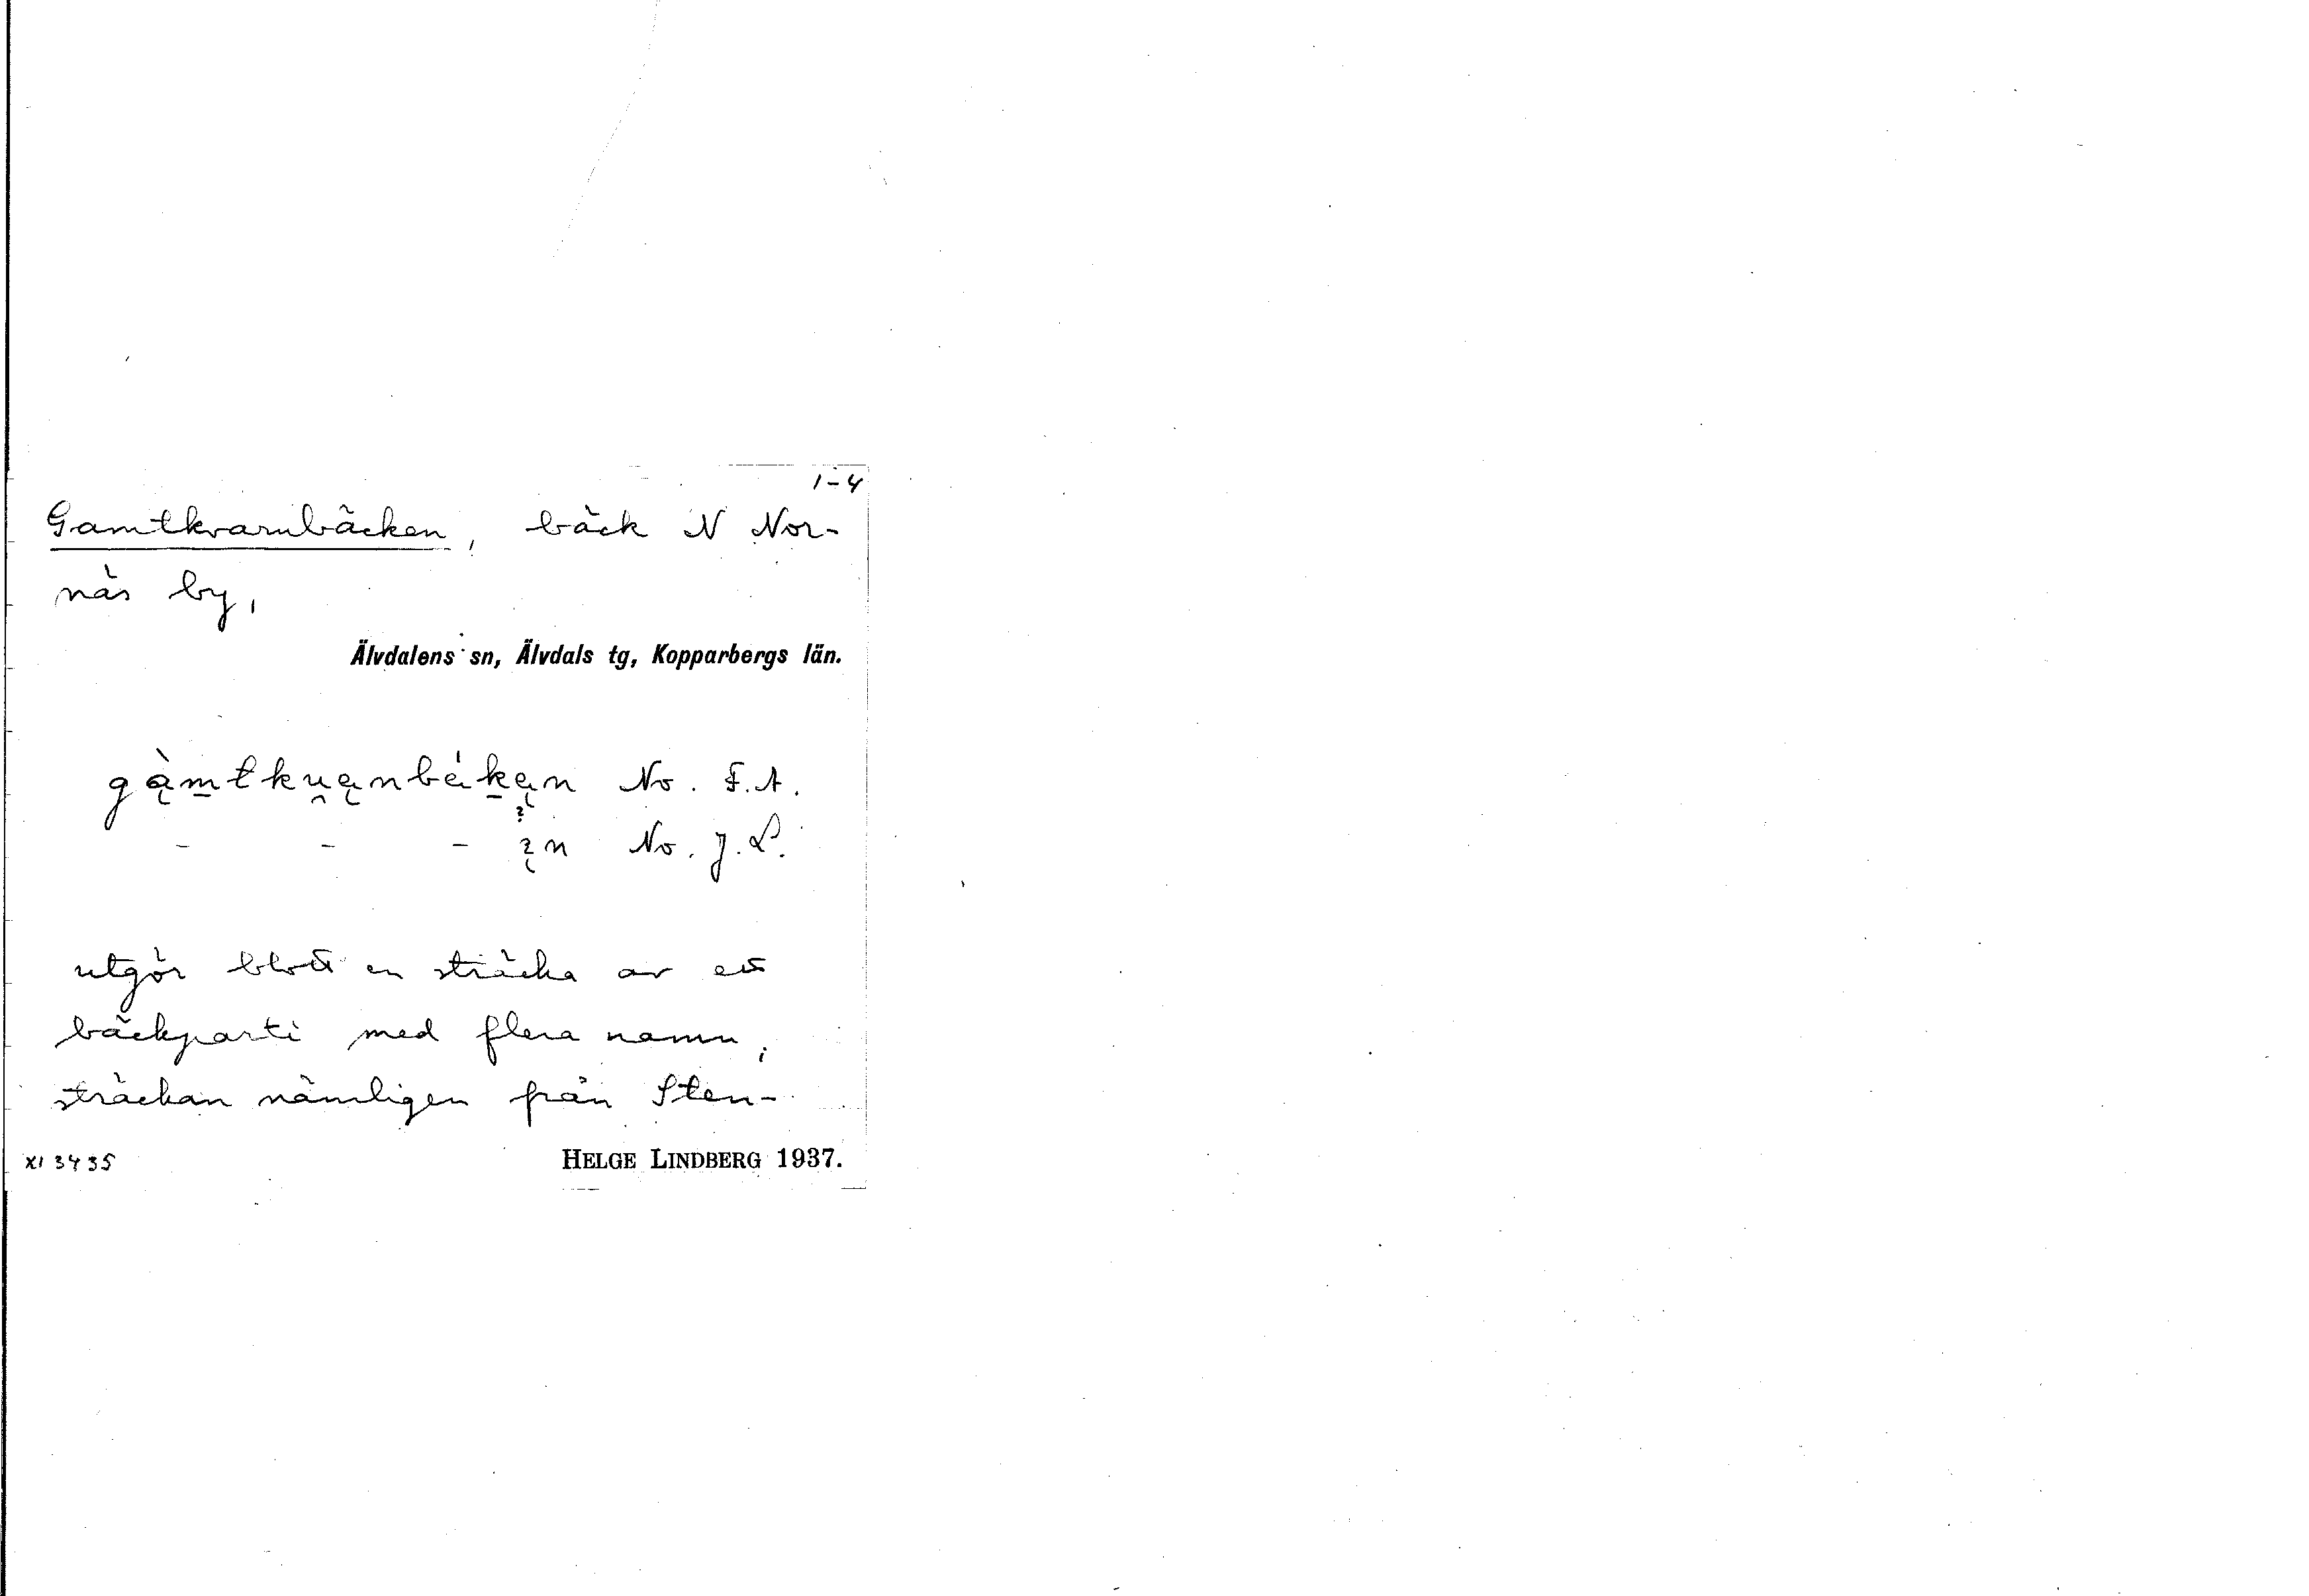 1-4
Gamtkvarnbäcken, bäck N Nor-
näs by,
Älvdalens sn, Älvdals tg, Kopparbergs län.
gą̀mtku̯ąnbék̠ąn No. F.A.
- - - ąn No. J.L.
utgör blott en sträcka av ett
bäckparti med flera namn;
sträckan nämligen från Sten-
XI 3435
HELGE LINDBERG 1937.